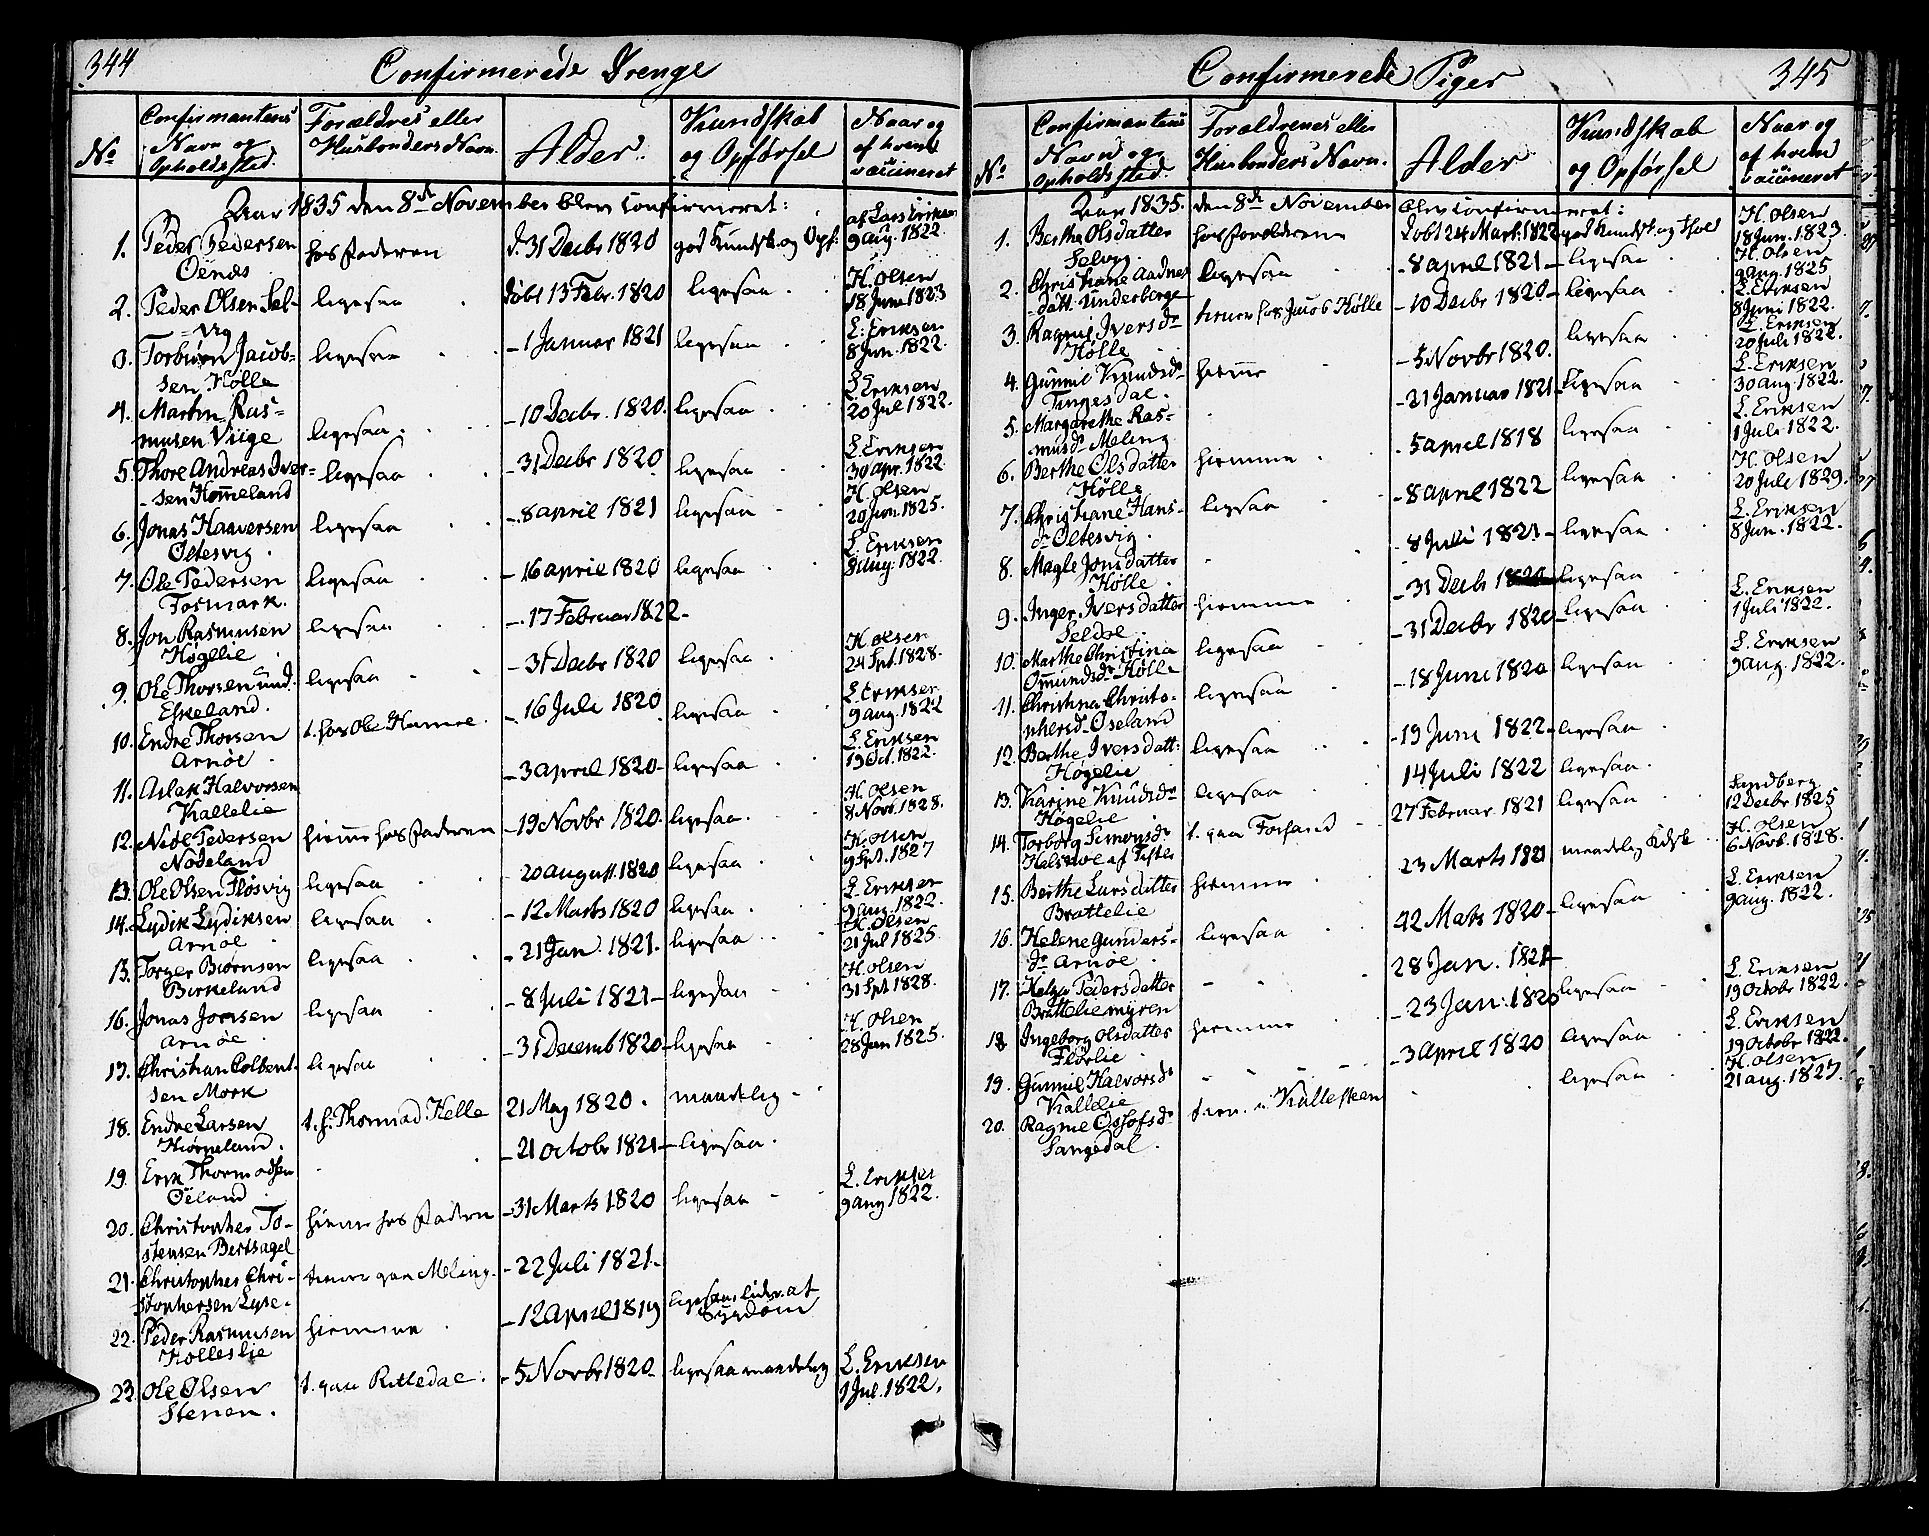 344
Confirmerede Drenge
No
Confirmantens Navn og Opholdssted.
Forældres eller Husbonders Navn.
Alder.
Kundskab og Opførsel
Naar og af hvem vaccineret
Aar 1835 den 8de November blev confirmeret:
1. Peder Pedersen Öenæs hos Faderen d. 31 Decbr 1820 god Kundsk. og Opf. af Lars Eriksen 9 Aug. 1822
2. Peder Olsen Selvig ligesaa døbt 13 Febr. 1820 ligesaa H. Olsen 18 Juni 1823
3. Torbiørn Jacobsen, Hølle ligesaa - 1 Januar 1821 ligesaa L. Eriksen 8 Jun. 1822.
4. Martin Rasmusen Viige ligesaa - 10 Decbr. 1820. ligesaa L. Eriksen 20 Jul 1822.
5. Thore Andreas Iversen Hommeland ligesaa - 31 Decbr 1820 ligesaa L. Eriksen 30 Apr. 1822.
6. Jonas Haaversen Oltesvig ligesaa - 8 April 1821 ligesaa H. Olsen 20 Jun. 1825.
7. Ole Pedersen Fosmark. ligesaa - 16 April 1820 ligesaa L. Eriksen Aug. 1822.
8. Jon Rasmusen Høgelie ligesaa - 17 Februar 1822 -
9. Ole Thorsen und. Eskeland. ligesaa - 31 Decbr 1820 ligesaa H. Olsen 24 Spt. 1828.
10. Endre Thorsen Arnøe t. hos Ole - 16 Juli 1820 ligesaa L. Eriksen 9 Aug. 1822
11. Aslak Halvorsen Kallelie - 3 April 1820 - ligesaa L. Eriksen 19 Oct. 1822.
12. Niels Pedersen Nodeland hiemme hos Faderen - 19 Novbr 1820. ligesaa H. Olsen 8 Novb. 1828.
13. Ole Olsen Fløsvig ligesaa - 20 August 1820 ligesaa H. Olsen 9 Spt. 1827
14. Lydik Lydiksen Arnøe ligesaa - 12 Marts 1820 ligesaa L. Eriksen 9 Aug. 1822.
15. Torger Biørnsen Birkeland ligesaa - 21 Jan. 1821. ligesaa H. Olsen 21 Jul 1825.
16. Jonas Jonsen Arnøe ligesaa - 8 Juli 1821 - ligesaa H. Olsen 31 Spt 1828.
17. Christian Colbentsen Mørk ligesaa - 31 Decemb 1820 - ligesaa H. Olsen 28 Jun 1825.
18. Endre Larsen Hiørneland. t. h. Thormod Helle 21 May 1820. maadelig
19 Erik Thormodsen Öiland - 21 Octobr 1821 - ligesaa
20. Christopher Tostensen Bertsagel hiemme hos Faderen - 31 Marts 1820 ligesaa L. Eriksen 9 Aug 1822.
21. Christopher Christophersen Lyse. tiener paa Meling - 22 Juli 1821.
22. Peder Rasmusen Kolleslie hiemme - 12 April 1819 ligesaa, lider af Sygdom
23. Ole Olsen Stenen. t. paa Rettedal - 5 Novbr 1820. ligesaa maadelig L. Eriksen 1 Jul. 1822.
Confirmerede Piger
345
No
Confirmantens Navn og Opholdssted
Forældrenes eller Husbonders Navn.
Alder
Kundskab og Opførsel
Naar og af hvem vaccineret
Aar 1835. den 8de November blev confirmeret:
1. Berthe Olsdatter Selvig. hos Forældrene Døbt 24 Mart. 1822 god Kundsk. og Forhold H. Olsen 18 Jun. 1823.
2. Christiane Aadnesdatt. Underberge ligesaa - 8 April 1821 - ligesaa H. Olsen 9 Aug. 1825
3. Ragnil Iversdr Hølle tiener hos Jacob Hølle - 10 Decbr 1820 - ligesaa L. Eriksen 8 Juni 1822.
4. Gunnil Knudsdr Tingesdal. hiemme - 5 Novbr 1820. ligesaa L. Eriksen 20 Juli 1822.
5. Margarethe Rasmusdr Meling - 21 Januar 1821 - ligesaa L. Eriksen 30 Aug. 1822.
6. Berthe Olsdatter Hølle hiemme - 5 April 1818 ligesaa L. Eriksen 1 Juli 1822.
7. Christiane Hansdr Oltesvig. ligesaa - 8 April 1822 ligesaa H. Olsen 20 Juli 1829.
8. Magle Jonsdatter Hølle - 8 Julii 1821 - ligesaa L. Eriksen 8 Jun. 1822.
9. Inger Iversdatter Seldal. hiemme - 31 Decbr 1820 - ligesaa
10. Marthe Christina Omundsdr Hølle ligesaa - 31 Decbr 1820 - ligesaa L. Eriksen 1 Juli 1822.
11. Christina Christophersdr Öseland ligesaa - 18 Juni 1820 ligesaa L. Eriksen 9 Aug. 1822.
12. Berthe Iversdatt: Høgelie ligesaa - 19 Juni 1822 - ligesaa
13. Karine Knudsdr Høgelie ligesaa 14 Juli 1822 ligesaa.
14. Torborg Simonsdr af t. paa Forsand 27 Februar 1821 ligesaa Sandberg 12 Decbr 1825
15. Berthe Larsdatter Brattelie hiemme 23 Marts 1821 maadelig Kdsk H. Olsen 6 Novb. 1828.
16. Helene Gundersdr Arnøe ligesaa 12 Mats 1820 - ligesaa L. Eriksen 9 Aug. 1822.
17. Helga Pedersdatter Brattelie myren 28 Jan. 1821
18 Ingeborg Olsdatter Flørlie hiemme - 23 Jan: 1820 ligesaa L. Eriksen 19 Octobr 1822.
19. Gunnil Halvorsdr Kallelie - 3 April 1820 ligesaa L. Eriksen 19 Octobr 1822.
20. Ragne Ossofsdr Sangedal. tien. i Kallesteen ligesaa H. Olsen 21 Aug. 1827.